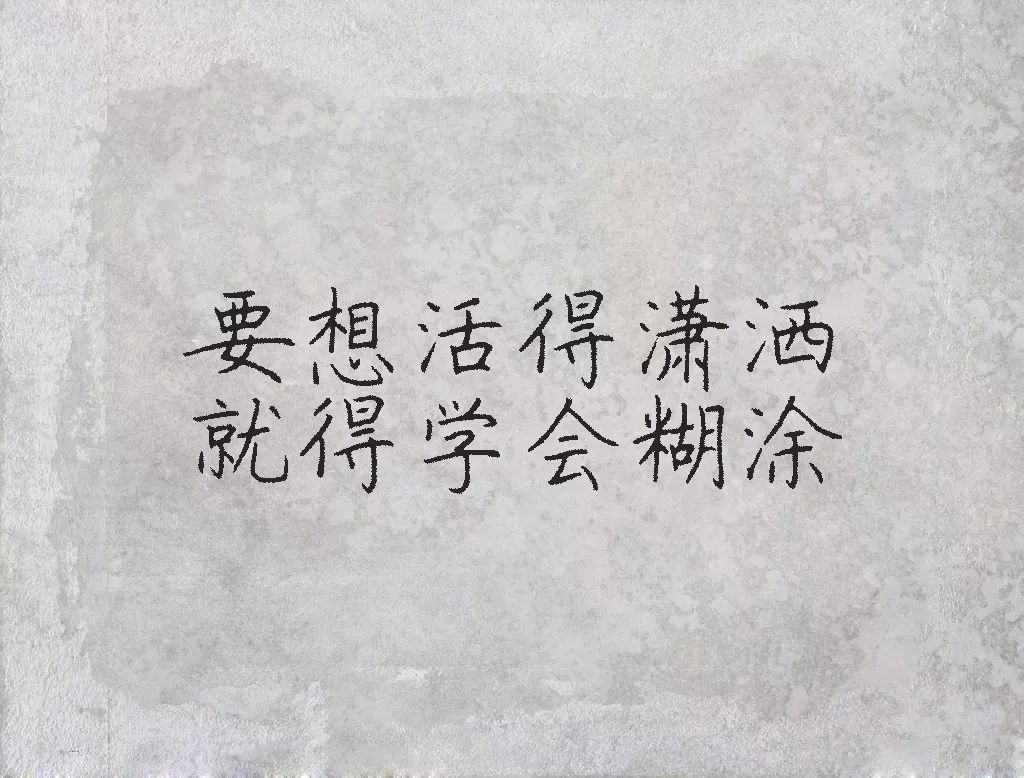 要想活得潇洒
就得学会糊涂